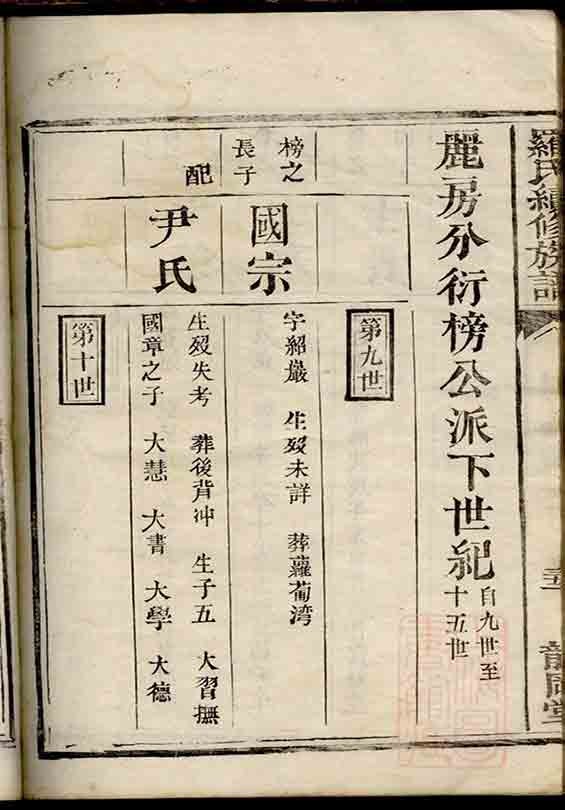 羅氏續修族譜
麗房分衍榜公派下世紀
自九世至
十五世
第九世
榜之
長子
國宗
字紹嚴 生歿未詳 葬蘿蔔湾
配
尹氏
生歿失考 葬後背冲 生子五 大習撫
國章之子 大慧 大書 大學 大德
第十世